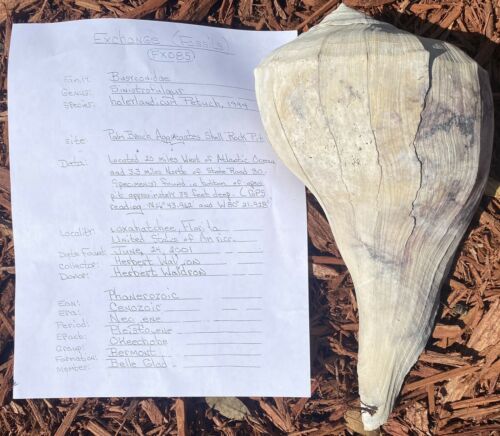 Exchange (Fossils)
(FX085)
Family: Busyconidae
Genus: Sinistrofulgur
Species: holerlandicum Petuch, 1994
Site: Palm Beach Aggregates Shell Rock Pit
Data: Located 20 miles West of Atlantic Ocean
and 3.3 miles North of State Road 80.
Specimen(s) found in bottom of open
pit approximately 75 feet deep. (GPS
reading
Locality: Loxahatchee, Florida
United States of America
Date Found: June, 24, 2001
Collector: Herbert Waldron
Donor: Herbert Waldron
Eon: Phanerozoic
Era: Cenozoic
Period: Neogene
Epoch: Pleistocene
Group: Okeechobe
Formation: Bermont
Member: Belle Glad